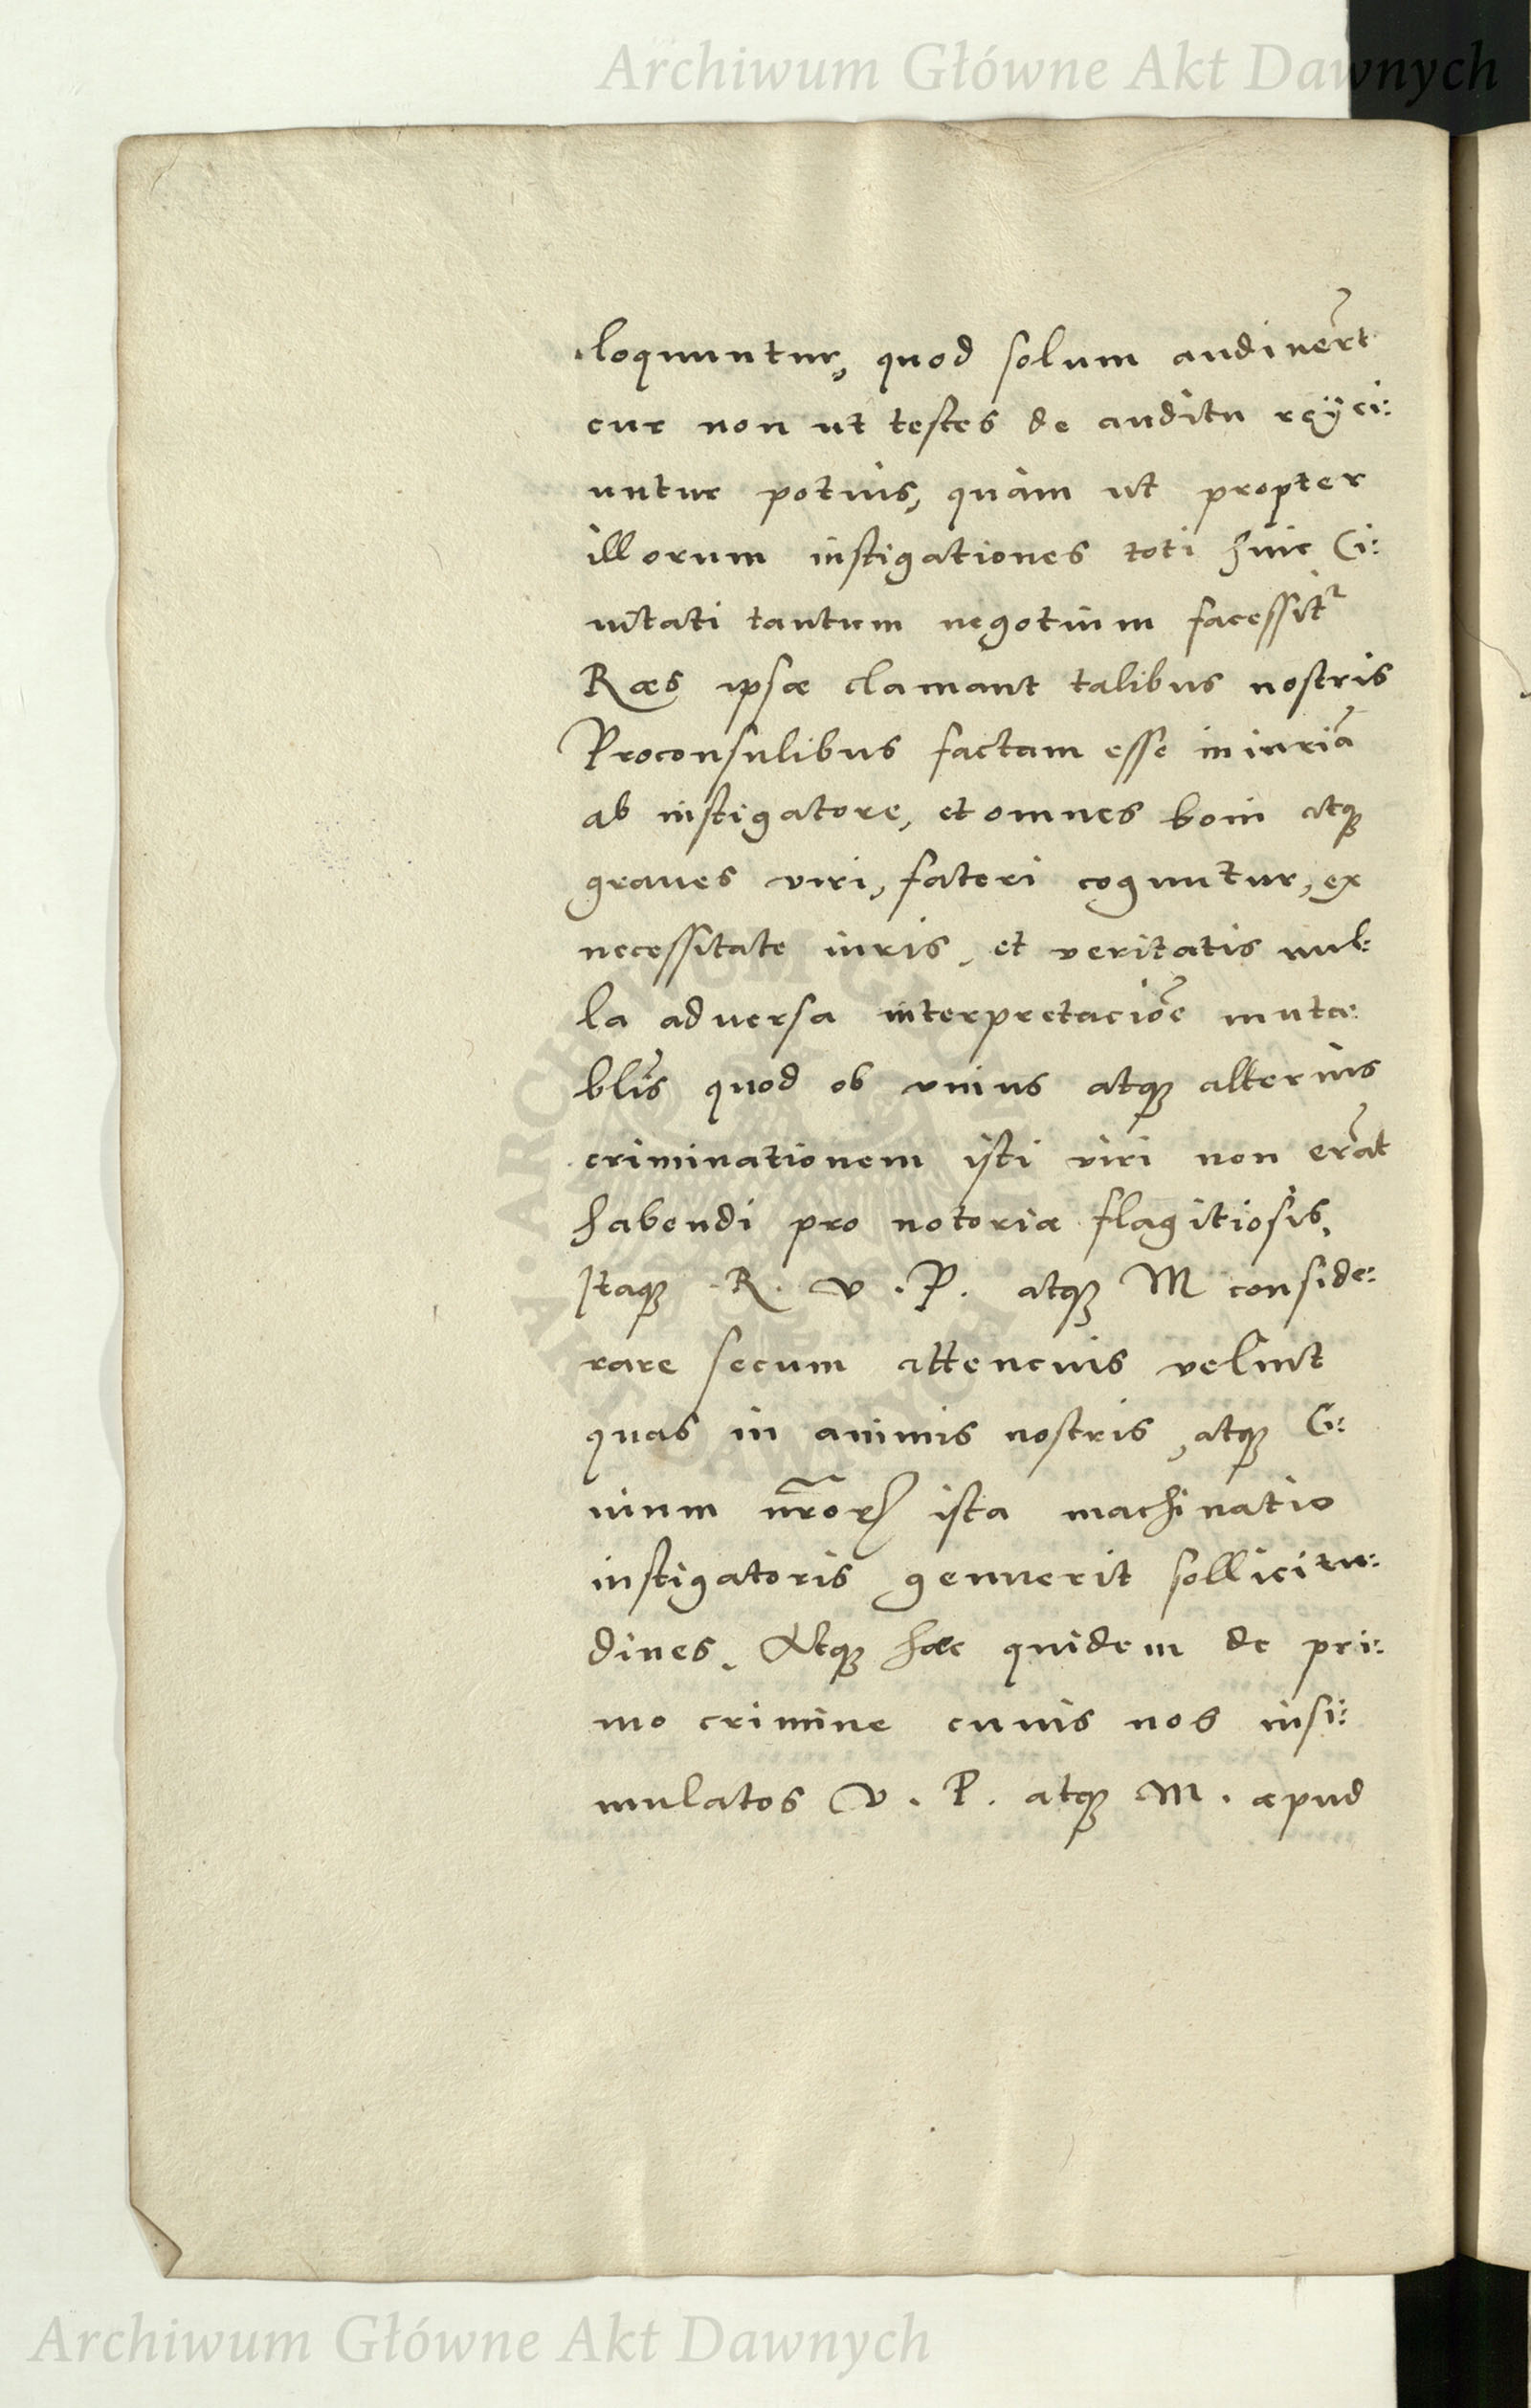 Archiwum Główne Akt Dawnych
loquuntur, quod solum audiuer̄t
cur non ut testes de auditu reÿci:
untur potius, quàm ut propter
illorum instigationes toti huic Ci:
uitati tantum negotium facessitr
Raes ipsæ clamant talibus nostris
Proconsulibus factam esse iniuriā
ab instigatore, et omnes boni atq;
graues viri, fateri coguntur, ex
necessitate iuris, et veritatis nul:
la aduersa interpretaciōe muta:
bl̄is quod ob vnius atq; alterius
criminationem isti viri non erāt
habendi pro notoriæ flagitiosis,
Itaq; R. v. P. atq; M conside:
rare secum attencius velint
quas in animis nostris, atq; Ci:
uium nr̄oꝝ ista machinatio
instigatoris genuerit sollicitu:
dines. Atq; hæc quidem de pri:
mo crimine cuius nos insi:
mulatos V. P. atq; M. apud
Archiwum Główne Akt Dawnych